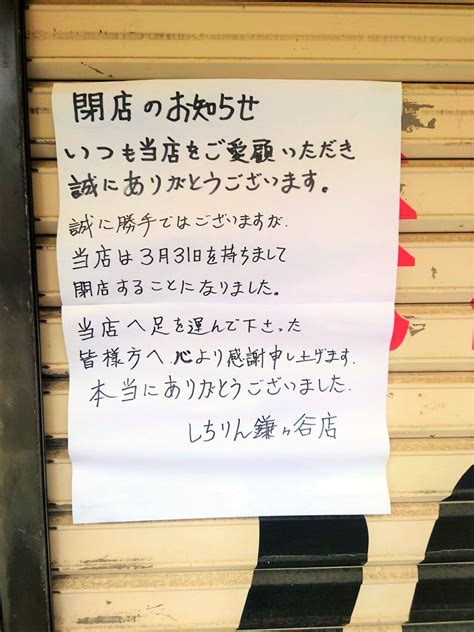 閉店のお知らせ
いつも当店をご愛顧いただき
誠にありがとうございます。
誠に勝手ではございますが、
当店は3月31日を持ちまして
閉店することになりました。
当店へ足を運んで下さった
皆様方へ心より感謝申し上げます。
本当にありがとうございました。
しちりん鎌ヶ谷店